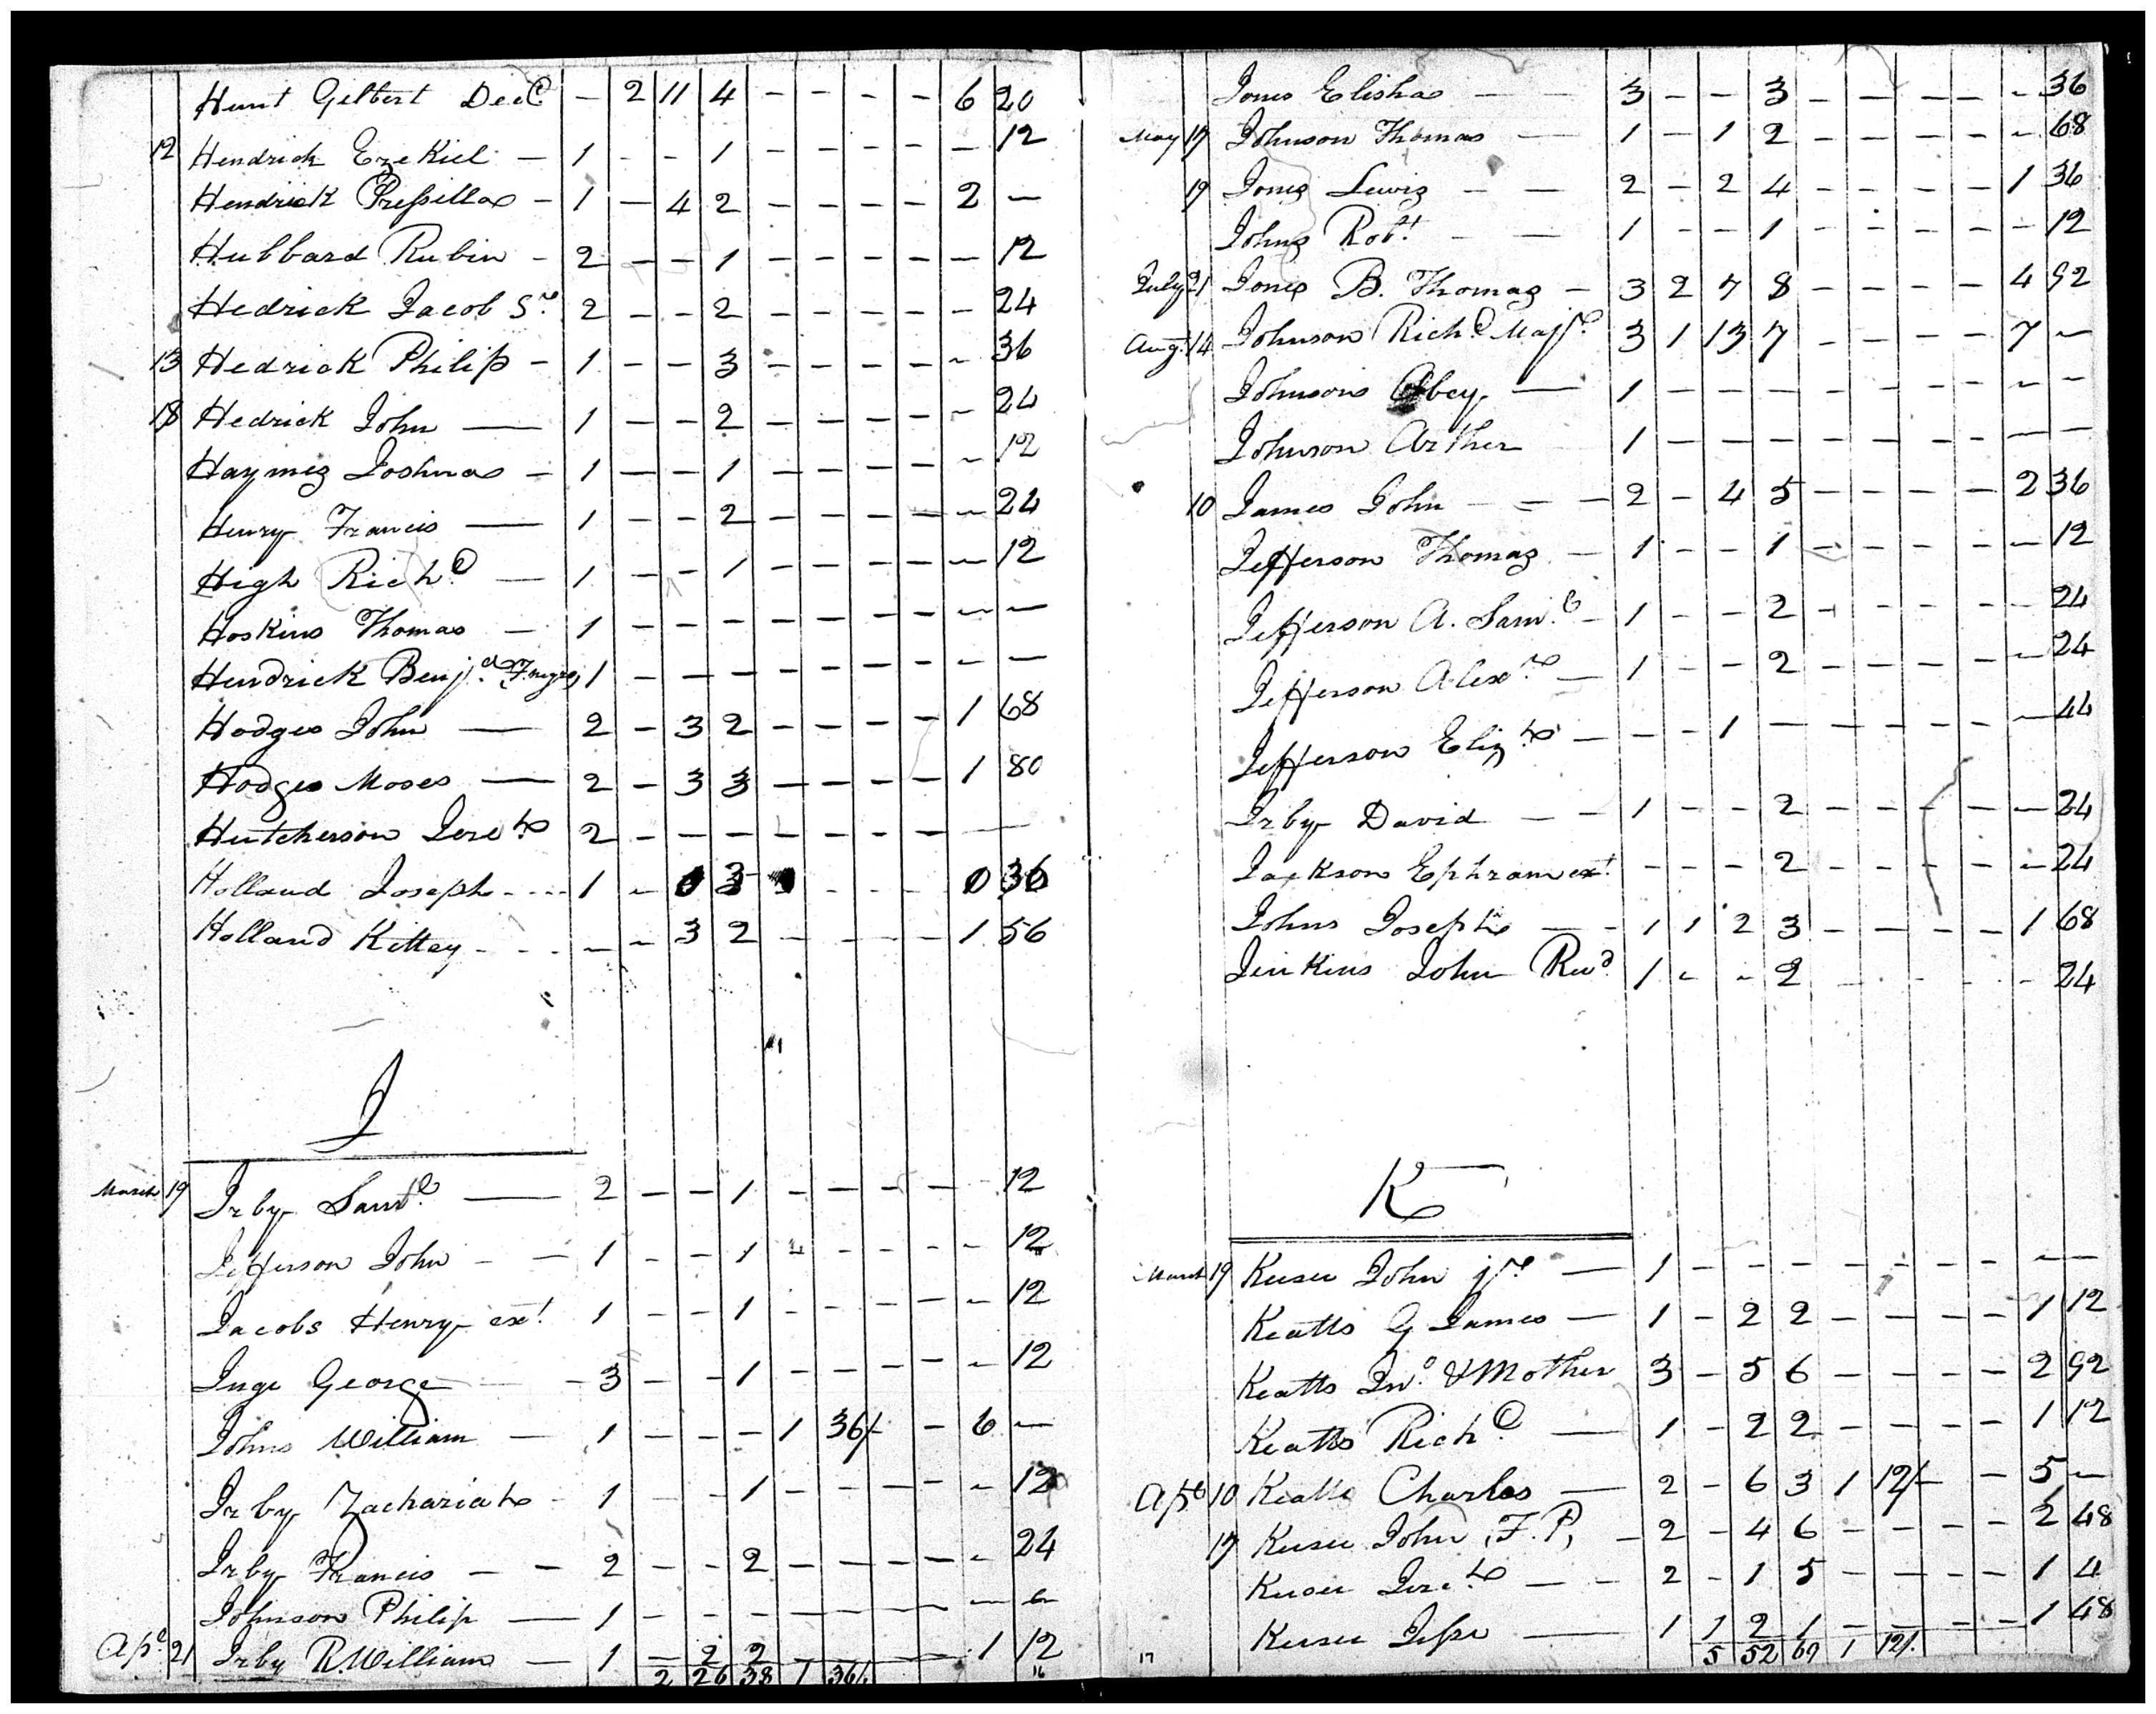 Hunt Gilbert Decd - 2 11 4 - - - - 6 20
12 Hendrick Ezekiel - 1 - - 1 - - - - - 12
Hendrick Pressilla - 1 - 4 2 - - - - 2 -
Hubbard Rubin - 2 - - 1 - - - - - 12
Hedrick Jacob Sr. 2 - - 2 - - - - - 24
13 Hedrick Philip - 1 - - 3 - - - - - 36
18 Hedrick John - 1 - - 2 - - - - - 24
Haymes Joshua - 1 - - 1 - - - - - 12
Henry Francis - 1 - - 2 - - - - - 24
High Richd - 1 - - 1 - - - - - 12
Hoskins Thomas - 1 - - - - - - - - -
Hendrick Benja. F. negro 1 - - - - - - - - -
Hodges John - 2 - 3 2 - - - - 1 68
Hodges Moses - 2 - 3 3 - - - - 1 80
Hutcherson Jereh 2 - - - - - - - -
Holland Joseph - 1 - 0 3 - - - 0 36
Holland Kittey - - - 3 2 - - - - 1 56
J
March 19 Irby Saml - 2 - - 1 - - - - - 12
Jefferson John - 1 - - 1 - - - - 12
Jacobs Henry ext 1 - - 1 - - - - - 12
Inge George - 3 - - 1 - - - - - 12
Johns William - 1 - - - 1 36/ - 6 -
Irby Zachariah - 1 - - 1 - - - - - 12
Irby Francis - 2 - - 2 - - - - - 24
Johnson Philip - 1 - - - - - - - - -
Apl. 21 Irby R. William - 1 - 2 2 - - - - 1 12
2 26 38 1 36/.
16
Jones Elisha - 3 - - 3 - - - - - 36
May 17 Johnson Thomas - 1 - 1 2 - - - - - 68
19 Jones Lewis - 2 - 2 4 - - - - 1 36
Johns Robt - 1 - - 1 - - - - - 12
July 21 Jones B. Thomas - 3 2 7 8 - - - - 4 92
Aug. 14 Johnson Richd Majr. 3 1 13 7 - - - - 7 -
Johnson Obey - 1 - - - - - - - - -
Johnson Arther 1 - - - - - - - - -
10 James John - 2 - 4 5 - - - - 2 36
Jefferson Thomas - 1 - - 1 - - - - - 12
Jefferson A. Saml - 1 - - 2 - - - - - 24
Jefferson Alexr - 1 - - 2 - - - - - 24
Jefferson Elizh - - - 1 - - - - - - 44
Irby David - 1 - - 2 - - - - - 24
Jackson Ephram ext - - - 2 - - - - - 24
Johns Joseph - 1 1 2 3 - - - - 1 68
Jinkins John Revd. 1 - - 2 - - - - - 24
K
March 19 Keesee John jr. - 1 - - - - - - - - -
Keatts G James - 1 - 2 2 - - - - 1 12
Keatts Jno. & Mother 3 - 5 6 - - - - 2 92
Keatts Richd - 1 - 2 2 - - - - 1 12
Apl 10 Keatts Charles - 2 - 6 3 1 12/- - 5 -
17 Keesee John, F. P, - 2 - 4 6 - - - - 2 48
Keesee Jereh - 2 - 1 5 - - - - 1 4
Keesee Jesse - 1 1 2 1 - - - - 1 48
17 5 52 69 1 12/.